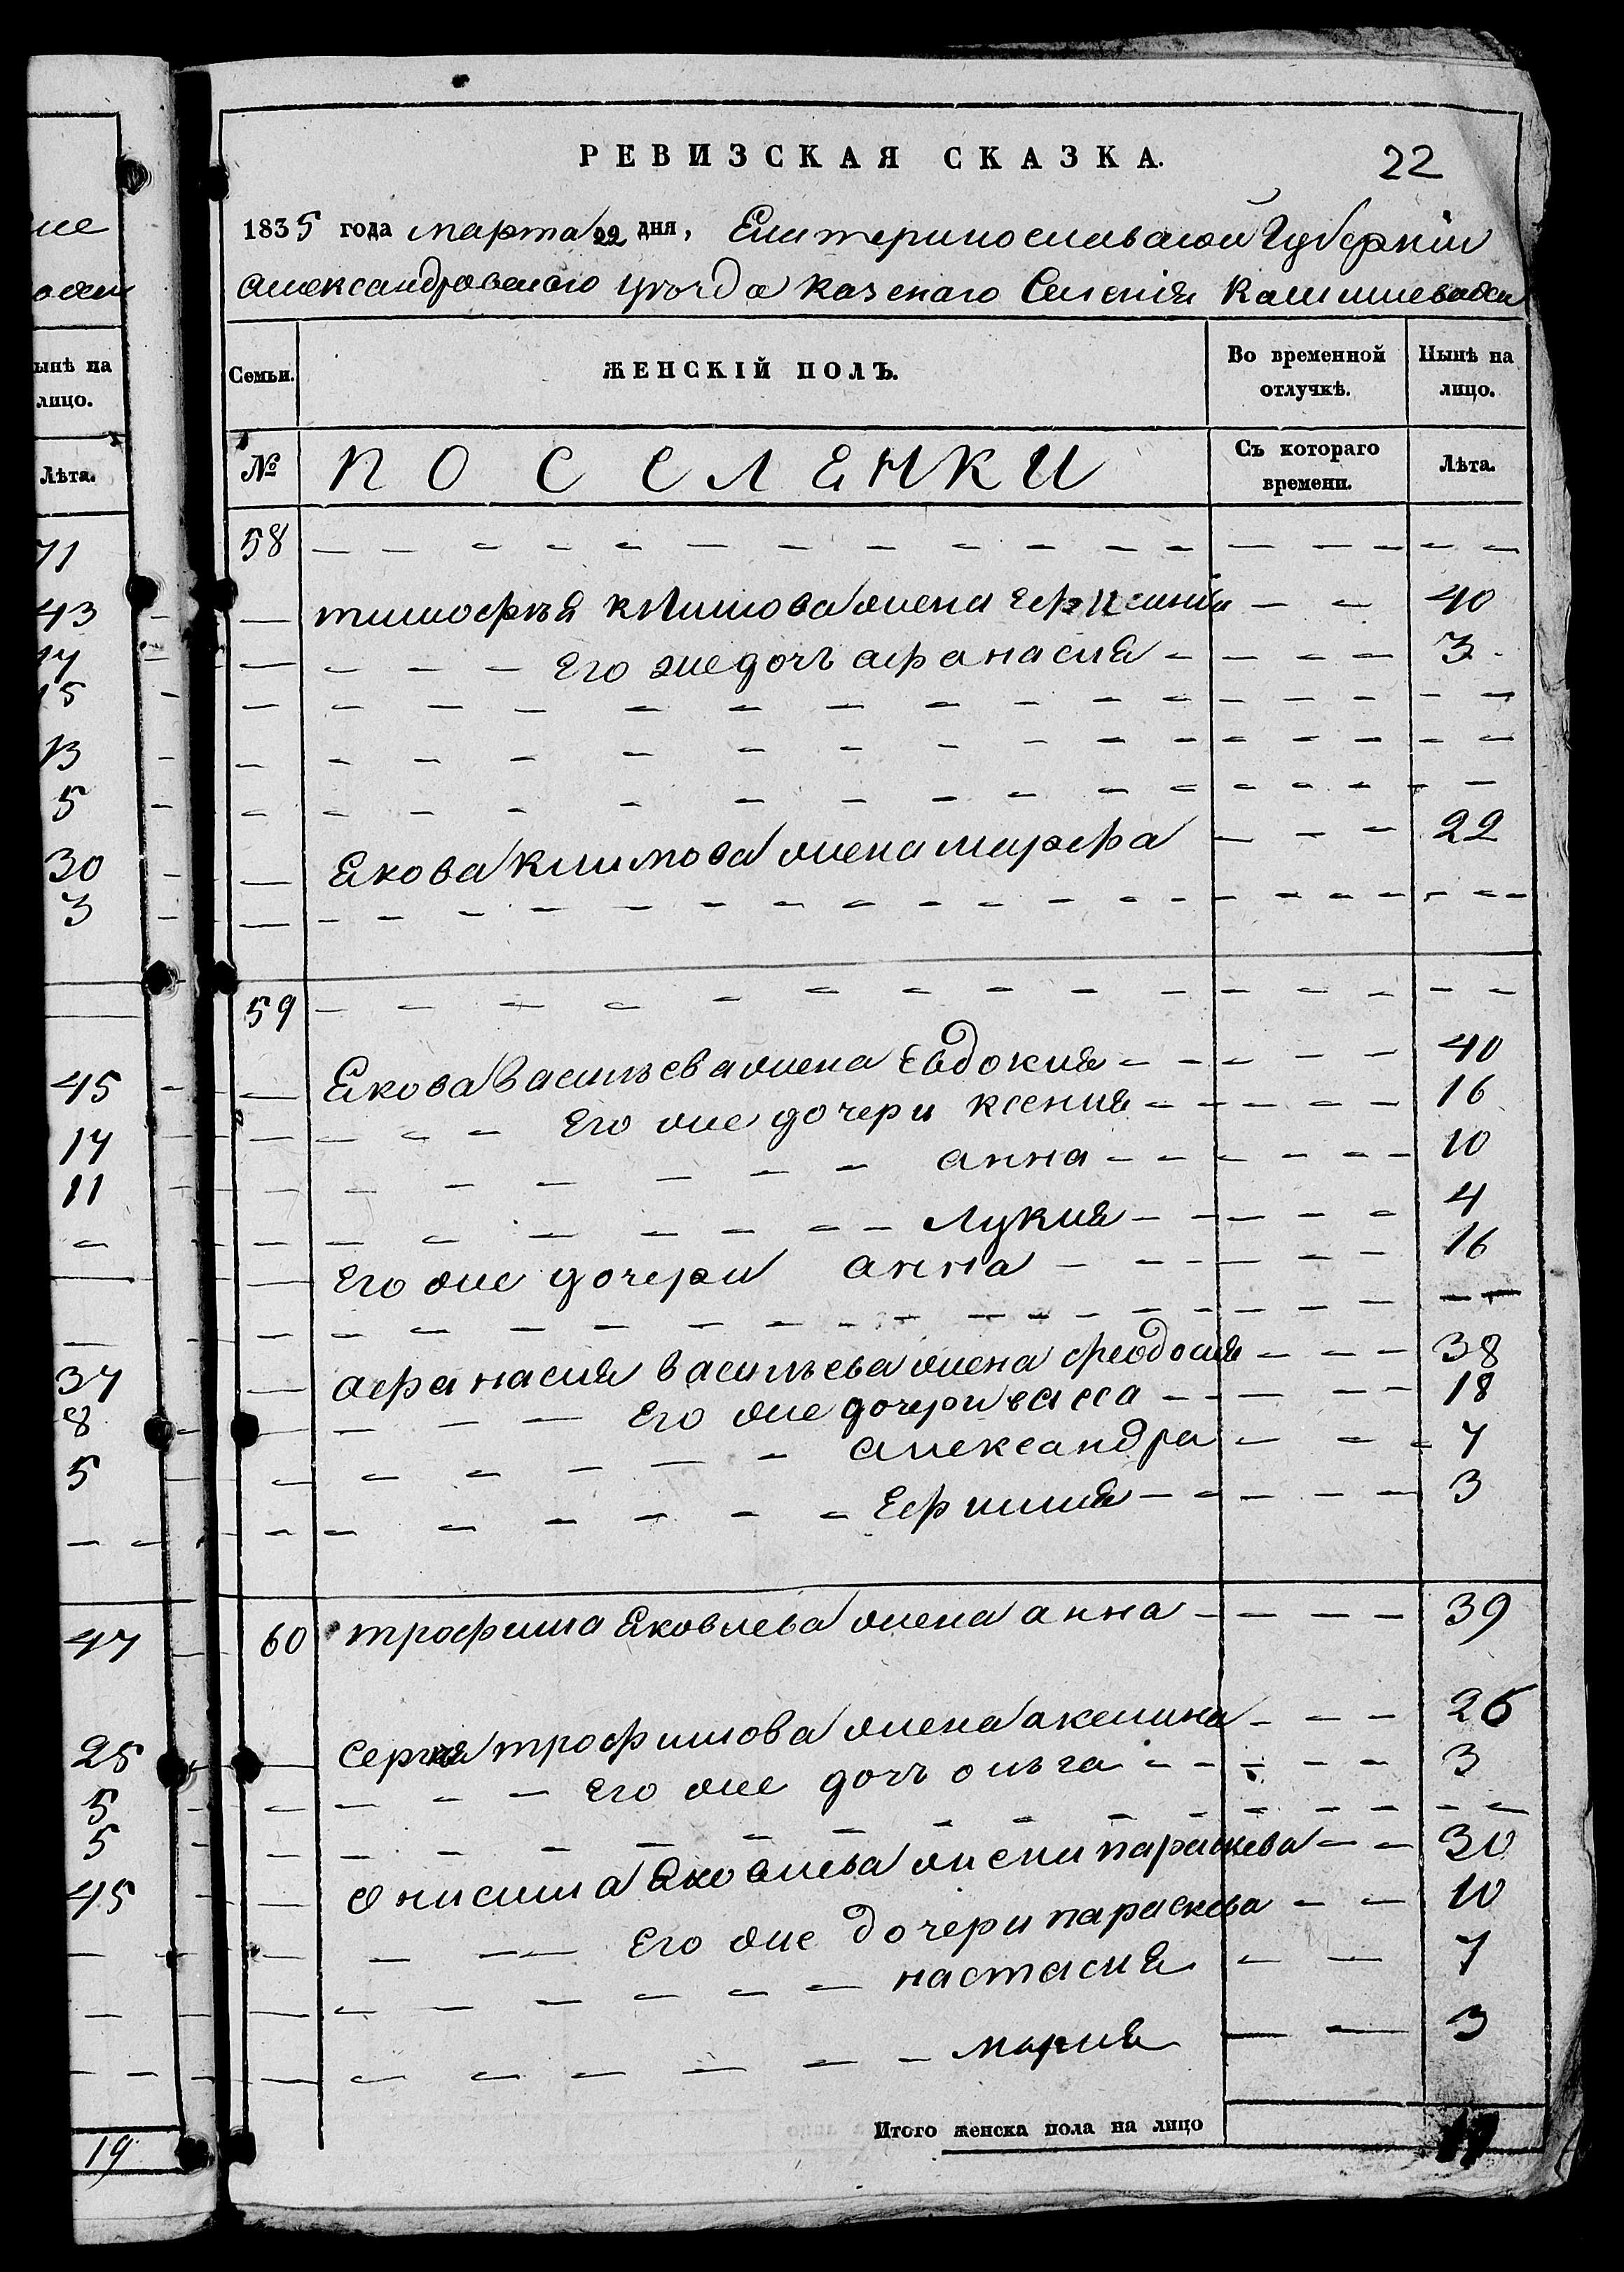 РЕВИЗСКАЯ СКАЗКА. 22
1835 года марта 22 дня, Екатеринославской Губернiи
александровскаго уезда казенаго Селенiя
Семьи. ЖЕНСКIЙ ПОЛЪ. Во временной отлучкѣ. Нынѣ на лицо.
№ ПОСЕЛЕНКИ Съ котораго времени. Лѣта.
58
тимофѣя климова жена 40
Его же дочь афанасия 3
Якова климова жена марфа 22
59
Якова Васильева жена Евдокия 40
Его же дочери ксения 16
анна 10
Лукия 4
Его же дочери анна 16
афанасия васильева жена феодосия 38
Его же дочери васса 18
александра 7
Ефимия 3
60 трофима Яковлева жена анна 39
Сергея трофимова жена аксинна 26
Его же дочь ольга 3
Онисима Яковлева жена параскева 30
Его же дочери параскева 10
настасия 7
мария 3
Итого женска пола на лицо
ынѣ на
лицо.
Лѣта.
71
43
17
15
13
5
30
3
45
17
11
37
8
5
47
25
5
5
45
19